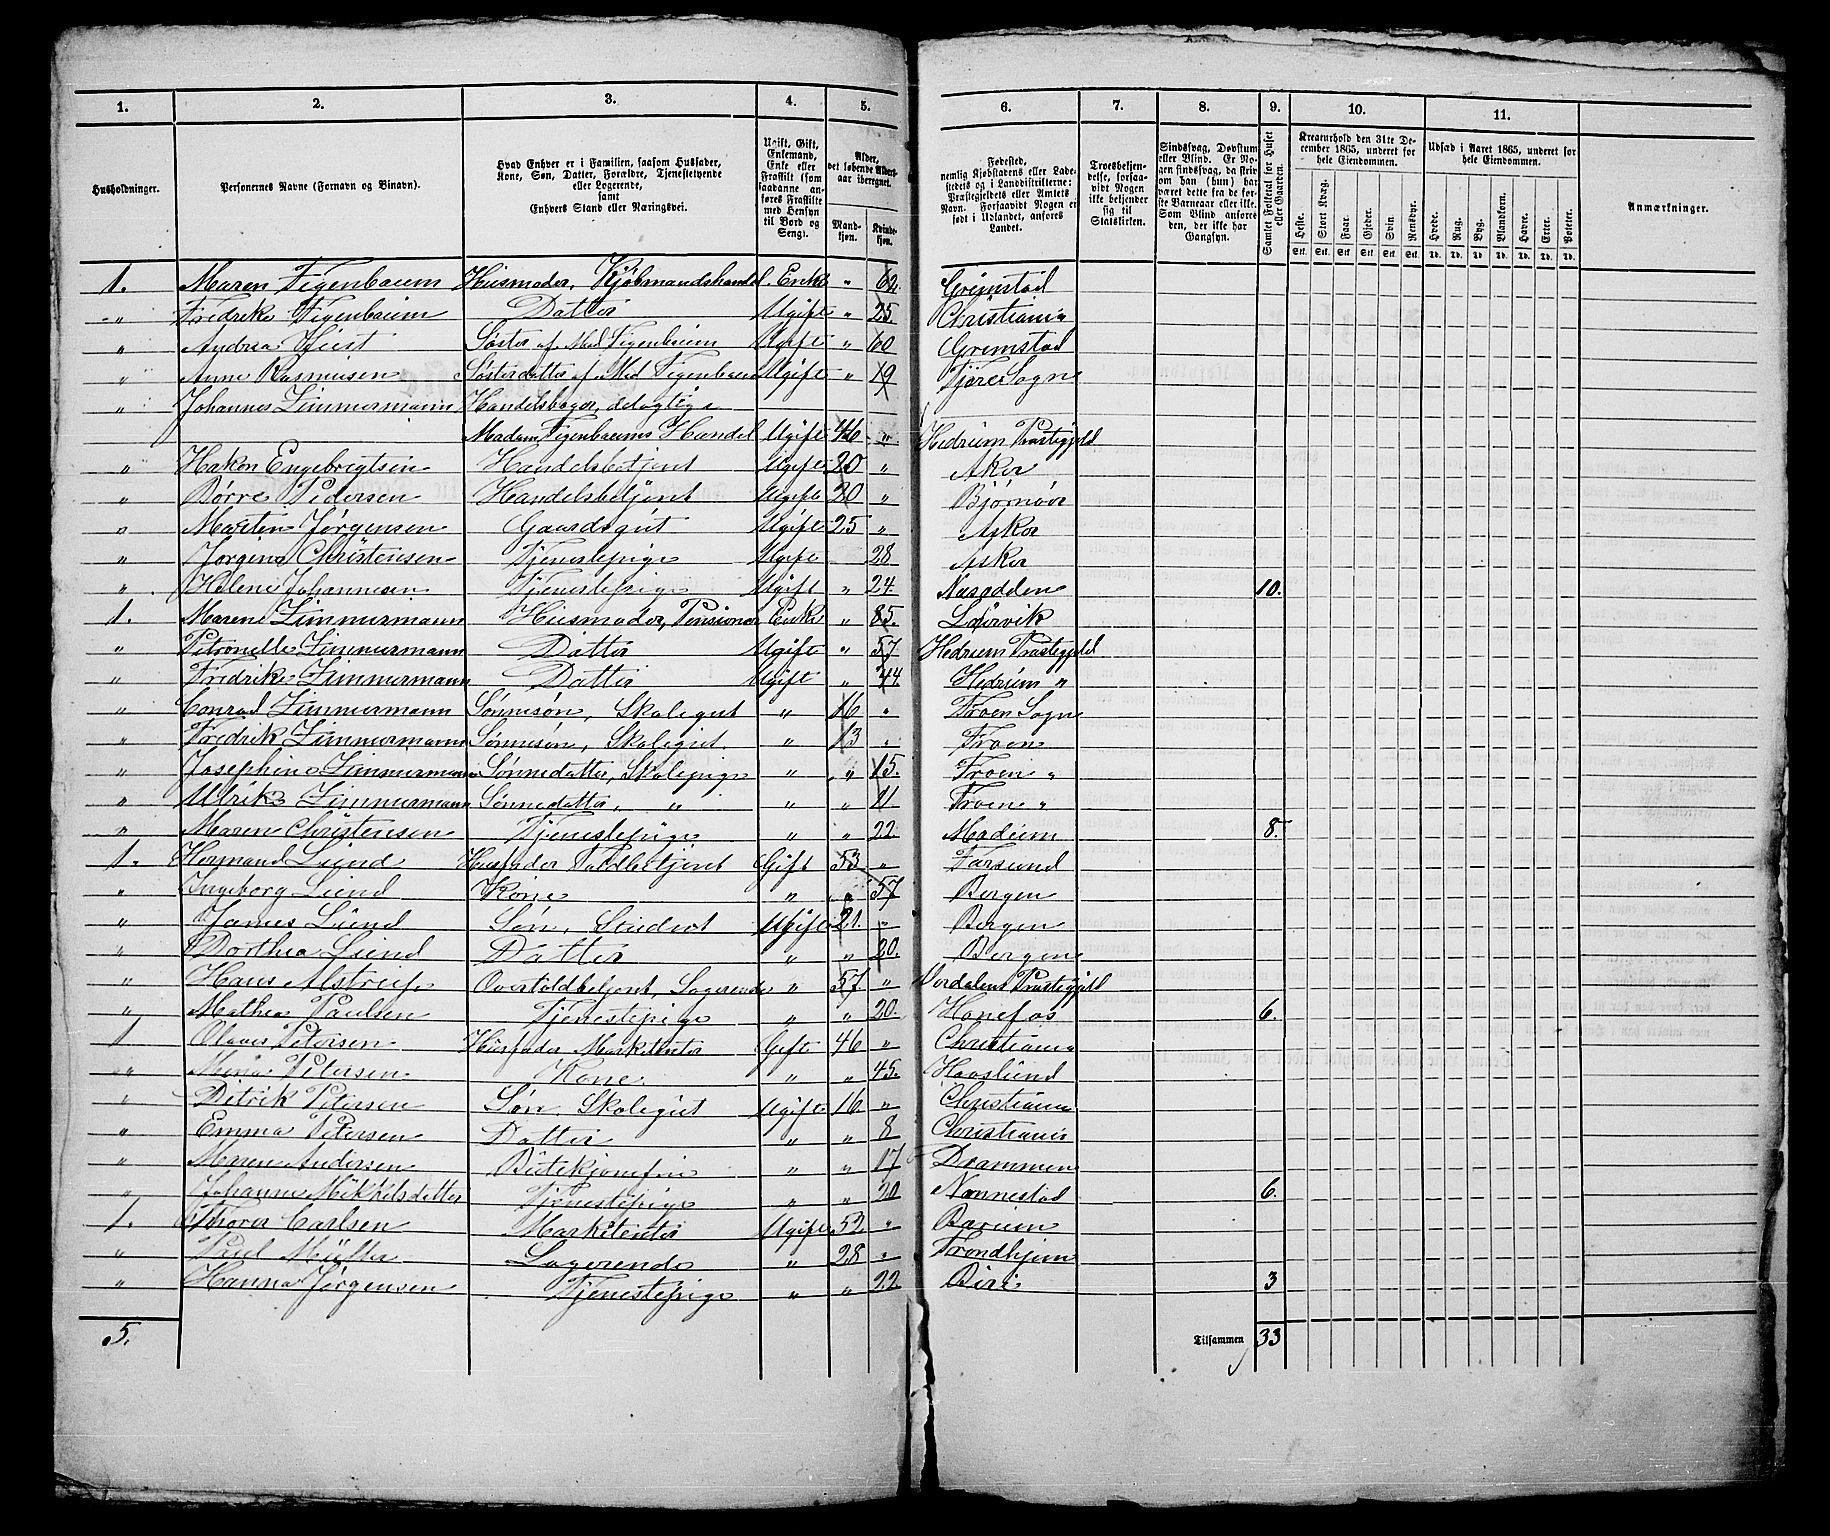 1. 2. 3. 4. 5. 6. 7. 8. 9. 10. 11.
Husholdninger.
Personernes Navne (Fornavn og Binavn).
Hvad Enhver er i Familien, saasom Husfader,
Kone, Søn, Datter, Forældre, Tjenestetyende
eller Logerende,
samt
Enhvers Stand eller Næringsvei.
Ugift, Gift,
Enkemand,
Enke eller
Fraskilt (som
saadanne an-
føres Fraskilte
med Hensyn
til Bord og
Seng).
Alder,
det løbende Alders-
aar iberegnet.
Mand-
kjøn.
Kvinde-
kjøn.
Fødested,
nemlig Kjøbstadens eller Lade-
stedets og i Landdistrikterne:
Præstegjeldets eller Amtets
Navn. Forsaavidt Nogen er
født i Udlandet, anføres
Landet.
Troesbekjen-
delse, forsaa-
vidt Nogen
ikke bekjender
sig til
Statskirken.
Sindssvag, Døvstum
eller Blind. Er No-
gen sindssvag, da skriv
om han (hun) har
været dette fra de før-
ste Barneaar eller ikke.
Som Blind anføres
den, der ikke har
Gangsyn.
Samlet Folketal for Huset
eller Gaarden.
Kreaturhold den 31te De-
cember 1865, underet for
hele Eiendommen.
Heste. Stort Kvæg. Faar. Gjeder. Svin. Rensdyr.
Stk. Stk. Stk. Stk. Stk. Stk.
Udsæd i Aaret 1865, underet for
hele Eiendommen.
Hvede. Rug. Byg. Blandkorn. Havre. Erter. Poteter.
Td. Td. Td. Td. Td. Td. Td.
Anmærkninger.
1. Maren Figenbaum Husmoder, Kjøbmandshandel. Enke " 62. Grimstad
" Fredrike Figenbaum Datter Ugift " 25. Christiania
" Andrea Just Søster af Mad Figenbaum Ugift " 60 Grimstad
" Anne Rasmusen Søsterdatter af Mad Figenbaum Ugift " 19 Fjære Sogn
" Johannes Zimmermann Handelsborger, delagtig i
Madam Figenbaums Handel Ugift 46 " Hedrum Præstegjeld
" Hakon Engebrigtsen Handelsbetjent Ugift 20 " Aker
" Børre Pedersen Handelsbetjent Ugift 20 " Bjørnør
" Martin Jørgensen Gaardsgut Ugift 25 " Asker
" Jørgine Christensen Tjenestepige Ugift 28 Asker
" Helene Johannesen Tjenestepige Ugift " 24 Næsodden 10.
1. Maren Zimmermann Husmoder, Pensioner Enke " 85. Laurvik
" Petronelle Zimmermann Datter Ugift " 57 Hedrum Præstegjeld
" Fredrike Zimmermann Datter Ugift " 44 Hedrum "
" Conrad Zimmermann Sønnesøn, Skolegut " 16 " Froen Sogn
" Fredrik Zimmermann Sønnesøn, Skolegut. " 13 " Froen
" Josephine Zimmermann Sønnedatter, Skolepige " " 15. Froen "
" Ulrike Zimmermann Sønnedatter, " " " 11 Froen "
" Maren Christensen Tjenestepige " " 22 Modum 8.
1. Hermand Lund Husfader Toldbetjent Gift 53 " Farsund
" Ingeborg Lund Kone " " 57 Bergen
" James Lund Søn, Student Ugift 21. " Bergen
" Dorthea Lund Datter " " 20. Bergen
" Hans Alstrup Overtoldbetjent, Logerende " 57 " Vordalens Præstegjeld
" Mathea Paulsen Tjenestepige " " 20. Hønefos 6.
1 Olaves Petersen Husfader Marketenter Gift 46 " Christiania
" Mina Petersen Kone " " 45. Hovslund
" Ditrik Petersen Søn, Skolegut Ugift 16 " Christiania
" Emma Petersen Datter " " 8 Christiania
" Maren Andersen Butikjomfru " " 17 Drammen
" Johanne Mikkelsdatter Tjenestepige " " 20 Nannestad 6.
1. Thorer Carlsen Marketenter Ugift 52. " Bærum
" Paul Müller Logerende " 28 " Trondhjem
" Hanna Jørgensen Tjenestepige " " 22 Biri 3
5. Tilsammen 33